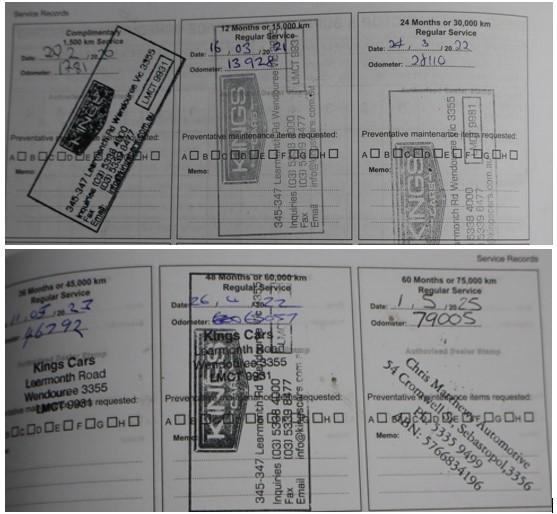 Service Records
Complimentary
1,500 km Service
Date: 20 2 / 20 20
Odometer: 1781
KINGS
345-347 Learmonth Rd Wendouree Vic 3355
LMCT 9931
Inquiries (03) 5338 4000
Fax (03) 5339 8477
Email info@kingscars.com.au
Preventative
A B C D E F G H
Memo:
12 Months or 15,000 km
Regular Service
Date: 16 03 / 20 21
Odometer: 13928
KINGS
345-347 Learmonth Rd Wendouree Vic 3355
LMCT 9931
Inquiries (03) 5338 4000
Fax (03) 5339 8477
Email info@kingscars.com.au
Preventative maintenance items requested:
A B C D E F G H
Memo:
24 Months or 30,000 km
Regular Service
Date: 24 3 / 20 22
Odometer: 28110
KINGS
Learmonth Rd Wendouree Vic 3355
5338 4000
5339 8477
Preventative maintenance items requested:
A B C D E F G H
Memo:
Service Records
36 Months or 45,000 km
Regular Service
11, 05 / 20 23
46292
Kings Cars
Learmonth Road
Wendouree 3355
LMCT 9931
requested:
B C D E F G H
48 Months or 60,000 km
Regular Service
Date: 26, 4 / 22
Odometer: 63057
Kings Cars
Learmonth Road
Wendouree 3355
LMCT 9931
KINGS
345-347 Learmonth Rd
Inquiries (03) 5338 4000
Fax (03) 5339 8477
Email info@kingscars.com.au
A B C D E F G H
Memo:
60 Months or 75,000 km
Regular Service
Date: 1, 5 / 20 25
Odometer: 79005
Authorised Dealer Stamp
Chris Automotive
54 Cromwell St Sebastopol, 3356
5335 9499
ABN: 5766834196
Preventative maintenance items requested:
A B C D E F G H
Memo: